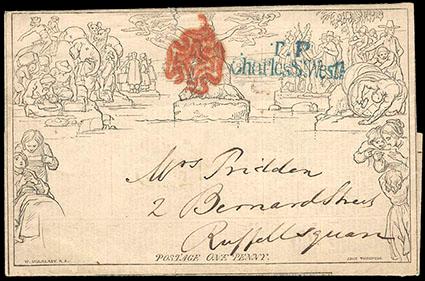 T.P
Charles S. West
Mrs Pridden
2 Bernard Street
Russell square
POSTAGE ONE PENNY.
W. MULREADY, R.A.
JOHN THOMPSON